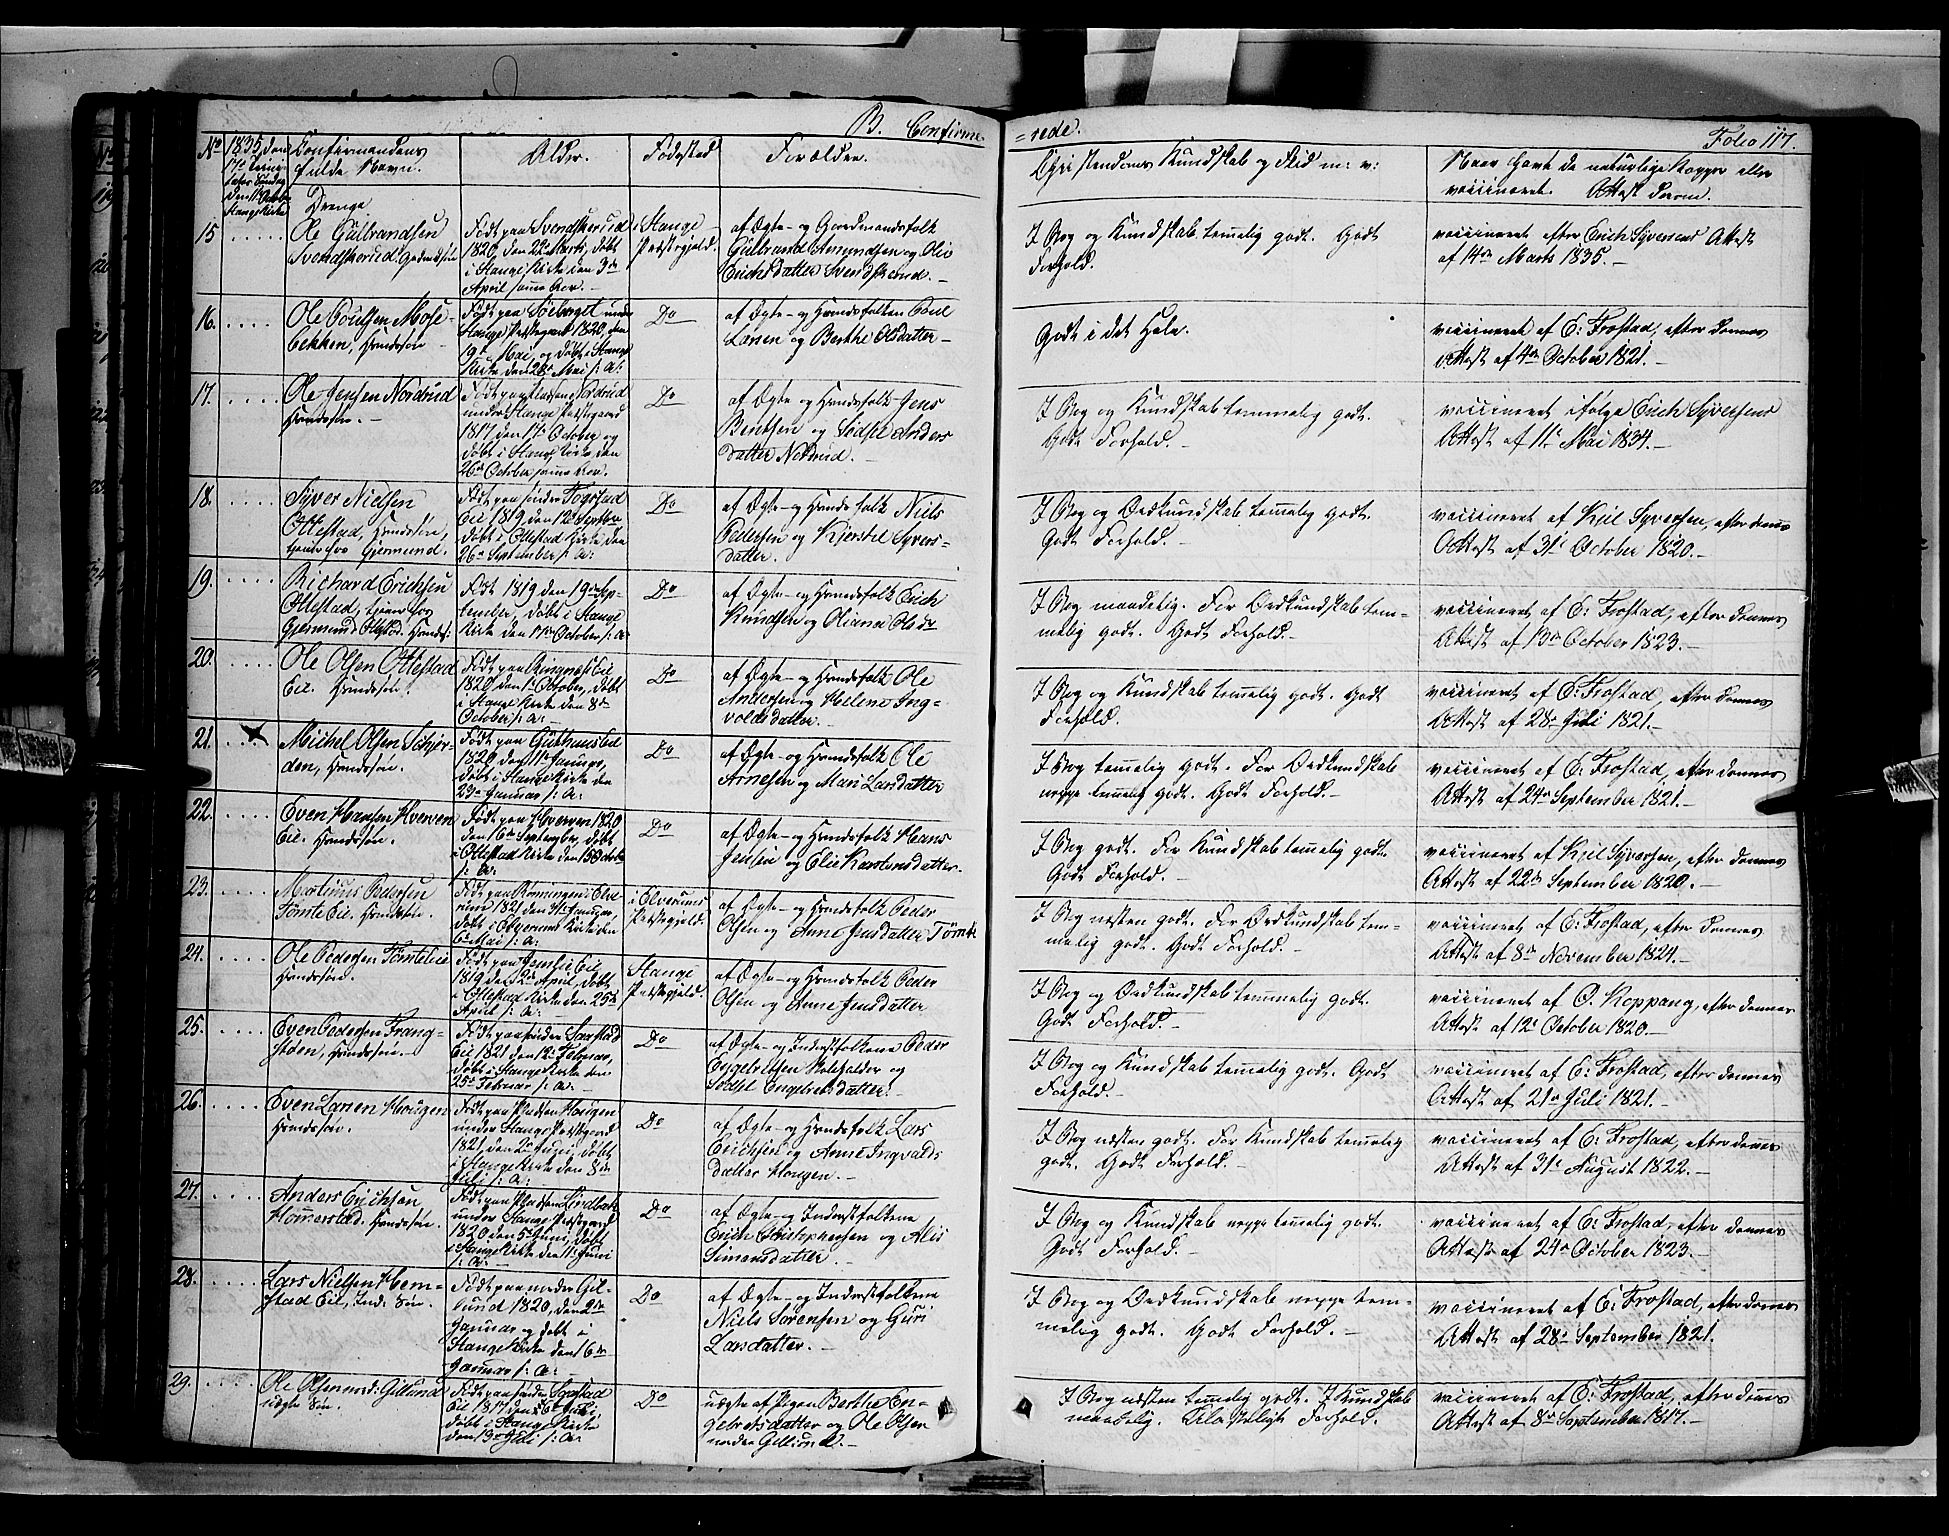 B. Confirme-
=rede.
Folio 117.
No
1835, den
17de Trini-
tatis Søndag
den 11te October
Stange Kirke
Confirmandens
fulde Navn.
Drenge
Alder.
Fødested
Forældre.
Christendoms Kundskab og Flid m: v:
Naar havt de naturlige Kopper eller
vaccineret. Attest derom.
15 .....
Ole Gulbrandsen
Svendskerud. Gaardmandssøn
Født paa Svendskerud
1820, den 22de Marts, døbt
i Stange Kirke den 3die
April samme Aar.
i Stange
Præstegjeld.
af Ægte- og Gaardmandsfolk
Gulbrand Amundsen og Olia
Erichsdatter Svendskerud.-
I Bog og Kundskab temelig godt. Godt
Forhold.
vaccineret efter Erich Syversens Attest
af 14de Marts 1835.-
16. ....
Ole Poulsen Mose-
bekken, Huusmandssøn
Født paa Søeberget under
Stange Præstegaard 1820, den
19de Mai, og døbt i Stange
Kirke, den 28de Mai s: A:
Do
af Ægte- og Huusmandsfolkene Poul
Larsen og Berthe Olsdatter-
Godt i det Hele.
vaccineret af E: Frostad, efter dennes
Attest af 4de October 1821.-
17. ....
Ole Jensen Nordrud
Huusmandssøn.-
Født paa Pladsen Nordrud
under Stange Præstegaard
1817 den 17de October og
døbt i Stange Kirke, den
26de October samme Aar.
Do
af Ægte og Huusmandsfolk Jens
Bentsen og Sidsel Anders
datter Nordrud.-
I Bog og Kundskab temmelig godt.
Godt Forhold.-
vaccineret ifølge Erich Syversens
Attest af 11te Mai 1834.-
18. ....
Syver Nielsen
Ottestad, Huusmandssøn,
tjener hos Gjermund.
Født paa søndre Fogstad
Eie 1819, den 12te Septbr,
døbt i Ottestad Kirke den
26de September s: A:
Do
af Ægte- og Huusmandsfolk Niels
Pedersen og Kjersti Syvers-
datter.-
I Bog og Ordkundskab temelig godt.
Godt Forhold.-
vaccineret af Kjel Syversen, efter dennes
Attest af 31te October 1820.-
19. ....
Richard Erichsen
Ottestad, tjener hos
Gjermund Ottestad. Huusmandss:
Født 1819 den 19de Sep-
tember, døbt i Stange
Kirke den 11te October, s: A:
Do
af Ægte- og Huusmandsfolk Erich
Knudsen og Oliana Olsdr
I Bog maadelig. For Ordkundskab tem-
melig godt. Godt Forhold.-
vaccineret af E: Frostad, efter dennes
Attest af 13de October 1823.-
20. ....
Ole Olsen Ottestad
Eie. Huusmandssøn.
Født paa Ringnæs Eie
1820 den 1te October, døbt
i Stange Kirke den 8de
October s: A:-
Do
af Ægte- og Huusmandsfolk Ole
Andersen og Helene Ing-
voldsdatter.-
I Bog og Kundskab temelig godt. Godt
Forhold.
vaccineret af E: Frostad, efter dennes
Attest af 28de Juli 1821.-
21. ....
Michel Olsen Schjer-
den, Huusmandssøn.
Født paa Guthuus Eie
1820, den 11te Januar,
døbt i Stange Kirke den
23de Januar s: A:
Do
af Ægte- og Huusmandsfolk Ole
Arnesen og Mari Larsdatter
I Bog temelig godt. For Ordkundskab
neppe temelig godt. Godt Forhold.-
vaccineret af E: Frostad, efter dennes
Attest af 24de September 1821.-
22. ....
Even Hansen Hverven
Eie. Huusmandssøn.
Født paa Hverven 1820
den 16de September, døbt
i Ottestad Kirke den 15de Octbr
s: A:
Do
af Ægte- og Huusmandsfolk Hans
Jensen og Elie Karstensdatter.
I Bog godt. For Kundskab temelig godt.
Godt Forhold.-
vaccineret af Kjel Syversen, efter dennes
Attest af 22de September 1820.-
23. ....
Martinus Pedersen
Tomte Eie. Huusmandssøn.
Født paa Rønningen i Elve-
rum 1821 den 31te Januar,
døbt i Elverums Kirke den
6te Mai s: A:
i Elverums
Præstegjeld.
af Ægte- og Huusmandsfolk Peder
Olsen og Anne Jensdatter Tomte
I Bog næsten godt. For Ordkundskab tem-
melig godt. Godt Forhold.-
vaccineret af E: Frostad, efter dennes
Attest af 8de November 1824.-
24. ....
Ole Pedersen Tomte Eie
Huusmandssøn.
1819 den 12te April, døbt
i Ottestad Kirke den 25de
April s: A:-
Stange
Præstegjeld.
af Ægte- og Huusmandsfolk Peder
Olsen og Anne Jensdatter
I Bog og Ordkundskab temmelig godt.
Godt Forhold.-
vaccineret af O. Koppang, efter dennes
Attest af 12te October 1820.-
25. ....
Even Pedersen Frang-
støen, Huusmandssøn.
Født paa søndre Saxstad
Eie 1821 den 12te Februar,
døbt i Stange Kirke den
25de Februar s: A:-
Do
af Ægte- og Inderstfolkene Peder
Engebretsen Rokohalder og
Sidsel Engebretsdatter.-
I Bog og Kundskab temelig godt. Godt
Forhold.-
vaccineret af E: Frostad, efter dennes
Attest af 21de Juli 1821.-
26. ....
Even Larsen Hougen
Huusmandssøn.
Født paa Pladsen Hougen
under Stange Præstegaard
1821, den 2de Juni, døbt
i Stange Kirke den 8de
Juli s: A:
Do
af Ægte- og Huusmandsfolk Lars
Erichsen og Anne Ingvalds
datter Hougen.-
I Bog næsten godt. For Kundskab temelig
godt. Godt Forhold.-
vaccineret af E: Frostad, efter dennes
Attest af 31te August 1822.-
27. ....
Anders Erichsen
Homerstad. Huusmandssøn.
Født paa Pladsen Lindbæk
under Stange Præstegaard
1820 den 5te Juni, døbt
i Stange Kirke den 11te Juni
s: A:
Do
af Ægte- og Inderstfolkene
Erich Christophersen og Alis
Simensdatter.-
I Bog og Kundskab neppe temelig godt.
Godt Forhold.-
vaccineret af E: Frostad, efter dennes
Attest af 24de October 1823.-
28. ....
Lars Nielsen Hom-
stad Eie, Ind: Søn.
Født paa nordre Gil-
lund 1820, den 2den
Januar og døbt i
Stange Kirke den 16de
Januar s: A:
Do
af Ægte- og Inderstfolkene
Niels Sørensen og Guri
Larsdatter.-
I Bog og Ordkundskab neppe tem-
melig godt. Godt Forhold.-
vaccineret af E: Frostad, efter dennes
Attest af 28de September 1821.
29. ....
Ole Olsen nord: Gillund
uægte Søn.
Født paa søndre Saxstad
Eie 1817 den 6te Juli
døbt i Stange Kirke
den 13de Juli s: A:
Do
uægte af Pigen Berthe En-
gebretsdatter og Ole Olsen
nordre Gillund.-
I Bog næsten temelig godt. I Kundskab
maadelig. Ulasteligt Forhold.
vaccineret af E: Frostad, efter dennes
Attest af 8de September 1817.-